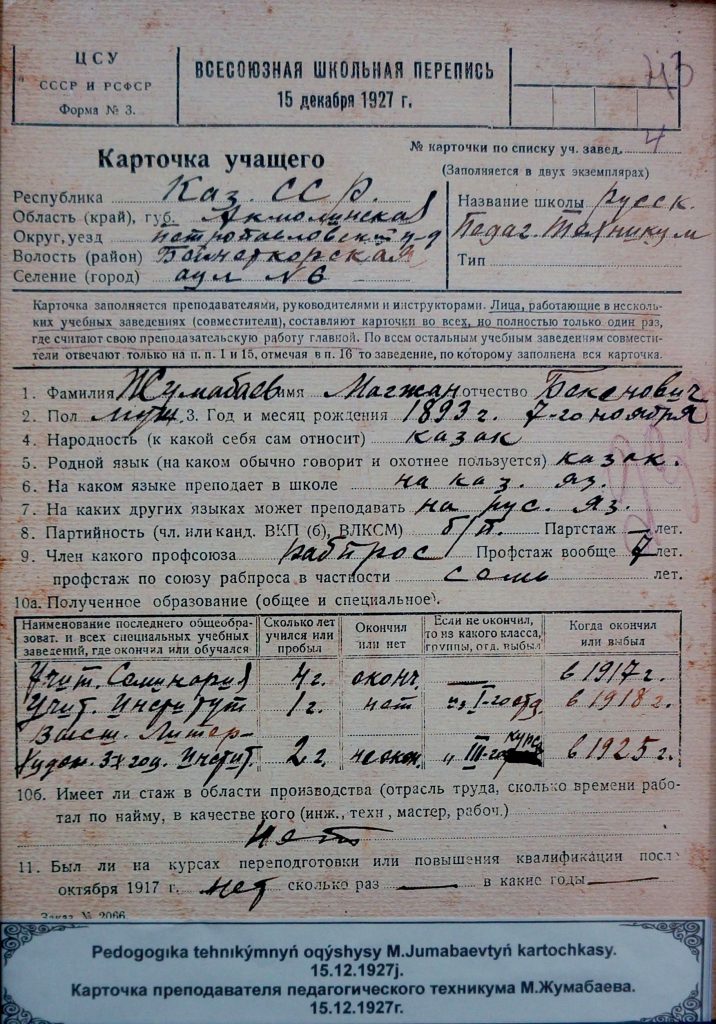 ЦСУ
СССР И РСФСР
Форма № 3.
ВСЕСОЮЗНАЯ ШКОЛЬНАЯ ПЕРЕПИСЬ
15 декабря 1927 г.
№ карточки по списку уч. завед. 4
Карточка учащего
(Заполняется в двух экземплярах)
Республика Каз. ССР.
Область (край), губ. Акмолинская
Округ, уезд Петропавловский у-д
Волость (район)
Селение (город) аул N 6
Название школы русск.
Педаг. Техникум
Тип
Карточка заполняется преподавателями, руководителями и инструкторами. Лица, работающие в несколь-
ких учебных заведениях (совместители), составляют карточки во всех, но полностью только один раз,
где считают свою преподавательскую работу главной. По всем остальным учебным заведениям совмести-
тели отвечают только на п. п. 1 и 15, отмечая в п. 16 то заведение, по которому заполнена вся карточка.
1. Фамилия Жумабаев имя Магжан отчество Бекенович
2. Пол муж. 3. Год и месяц рождения 1893 г. 7-го ноября
4. Народность (к какой себя сам относит) казак
5. Родной язык (на каком обычно говорит и охотнее пользуется) казак.
6. На каком языке преподает в школе на каз. яз.
7. На каких других языках может преподавать на рус. яз.
8. Партийность (чл. или канд. ВКП (б), ВЛКСМ) б/п. Партстаж — лет.
9. Член какого профсоюза рабпрос Профстаж вообще 7 лет.
профстаж по союзу рабпроса в частности семь лет.
10а. Полученное образование (общее и специальное).
Наименование последнего общеобра-
зоват. и всех специальных учебных
заведений, где окончил или обучался
Сколько лет
учился или
пробыл
Окончил
или нет
Если не окончил,
то из какого класса,
группы, отд. выбыл
Когда окончил
или выбыл
Учит. Семинария 4 г. оконч. — в 1917 г.
Учит. Институт 1 г. нет из I-го отд. в 1918 г.
Высш. Литер-
Худож. 3х год. Инстит. 2 г. не окон. " III-го курса в 1925 г.
10б. Имеет ли стаж в области производства (отрасль труда, сколько времени рабо-
тал по найму, в качестве кого (инж., техн., мастер, рабоч.)
Нет
11. Был ли на курсах переподготовки или повышения квалификации после
октября 1917 г. нет сколько раз — в какие годы —
Заказ № 2066.
Pedogogıka tehnıkýmnyń oqýshysy M.Jumabaevtyń kartochkasy.
15.12.1927j.
Карточка преподавателя педагогического техникума М.Жумабаева.
15.12.1927г.